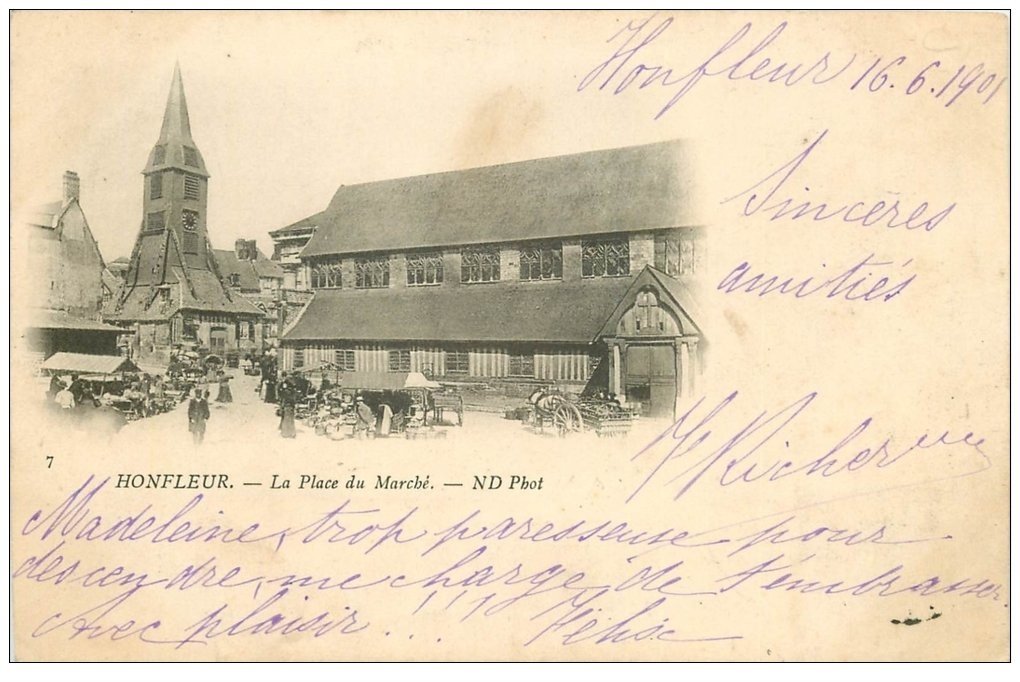 Honfleur 16.6.1901
Sincères
amitiés
Richer
7
HONFLEUR. — La Place du Marché. — ND Phot
Madeleine, trop paresseuse pour
descendre, me charge de t'embrasser.
Avec plaisir!!!